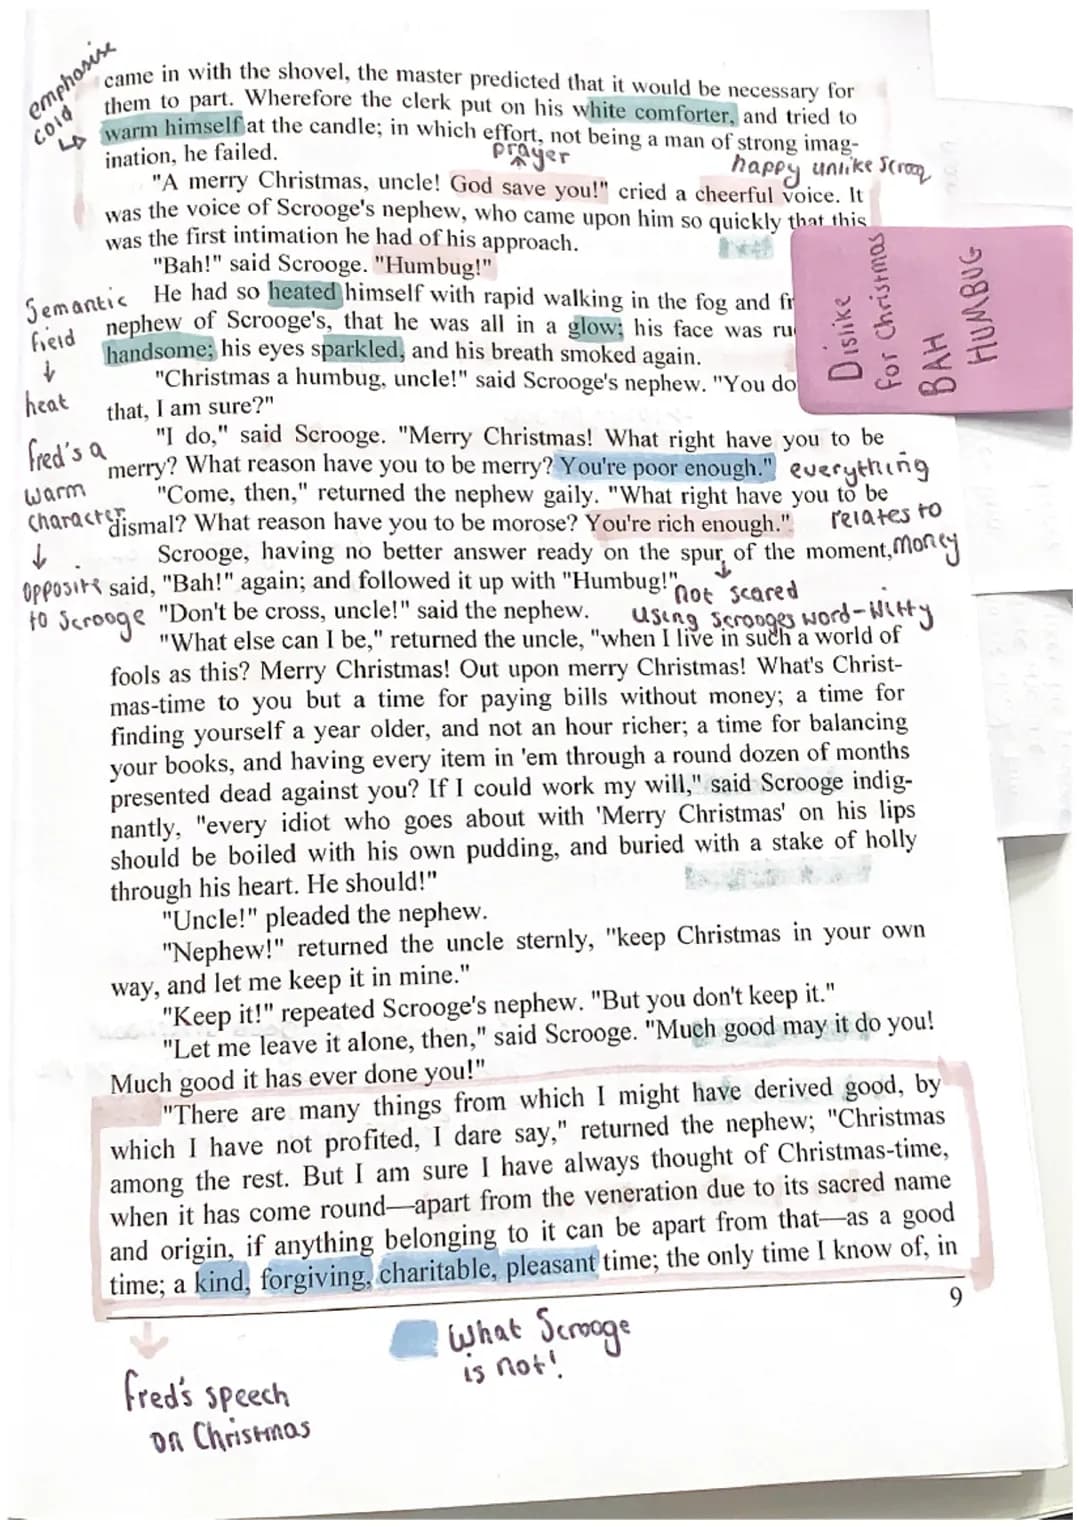 emphasise
cold
came in with the shovel, the master predicted that it would be necessary for
them to part. Wherefore the clerk put on his white comforter, and tried to
warm himself at the candle; in which effort, not being a man of strong imag-
ination, he failed.
prayer
happy unlike Scroog
"A merry Christmas, uncle! God save you!" cried a cheerful voice. It
was the voice of Scrooge's nephew, who came upon him so quickly that this
was the first intimation he had of his approach.
"Bah!" said Scrooge. "Humbug!"
Semantic
field
heat
He had so heated himself with rapid walking in the fog and fr
nephew of Scrooge's, that he was all in a glow; his face was ru
handsome; his eyes sparkled, and his breath smoked again.
Dislike
for Christmas
BAH
HUMBUG
"Christmas a humbug, uncle!" said Scrooge's nephew. "You do
that, I am sure?"
"I do," said Scrooge. "Merry Christmas! What right have you to be
merry? What reason have you to be merry? You're poor enough."
everything
relates to
money
Fred's a
warm
character
opposite
to Scrooge
"Come, then," returned the nephew gaily. "What right have you to be
dismal? What reason have you to be morose? You're rich enough."
Scrooge, having no better answer ready on the spur of the moment,
said, "Bah!" again; and followed it up with "Humbug!"
not scared
using Scrooges word-witty
"Don't be cross, uncle!" said the nephew.
"What else can I be," returned the uncle, "when I live in such a world of
fools as this? Merry Christmas! Out upon merry Christmas! What's Christ-
mas-time to you but a time for paying bills without money; a time for
finding yourself a year older, and not an hour richer; a time for balancing
your books, and having every item in 'em through a round dozen of months
presented dead against you? If I could work my will," said Scrooge indig-
nantly, "every idiot who goes about with 'Merry Christmas' on his lips
should be boiled with his own pudding, and buried with a stake of holly
through his heart. He should!"
"Uncle!" pleaded the nephew.
"Nephew!" returned the uncle sternly, "keep Christmas in your own
way, and let me keep it in mine."
"Keep it!" repeated Scrooge's nephew. "But you don't keep it."
"Let me leave it alone, then," said Scrooge. "Much good may it do you!
Much good it has ever done you!"
"There are many things from which I might have derived good, by
which I have not profited, I dare say," returned the nephew; "Christmas
among the rest. But I am sure I have always thought of Christmas-time,
when it has come round—apart from the veneration due to its sacred name
and origin, if anything belonging to it can be apart from that—as a good
time; a kind, forgiving, charitable, pleasant time; the only time I know of, in
9
Fred's speech
on Christmas
What Scrooge
is not!